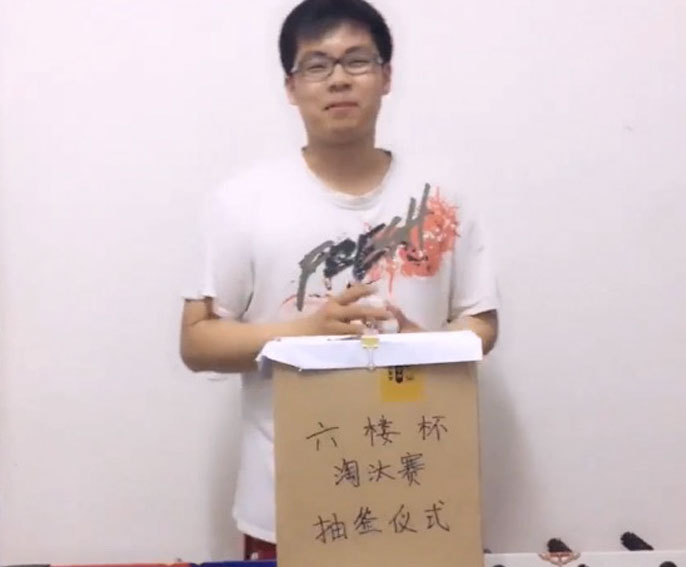 FRESH
六楼杯
淘汰赛
抽签仪式